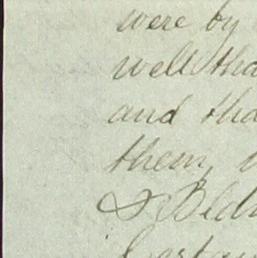 were by
well tha
and tha
them,
& Bld